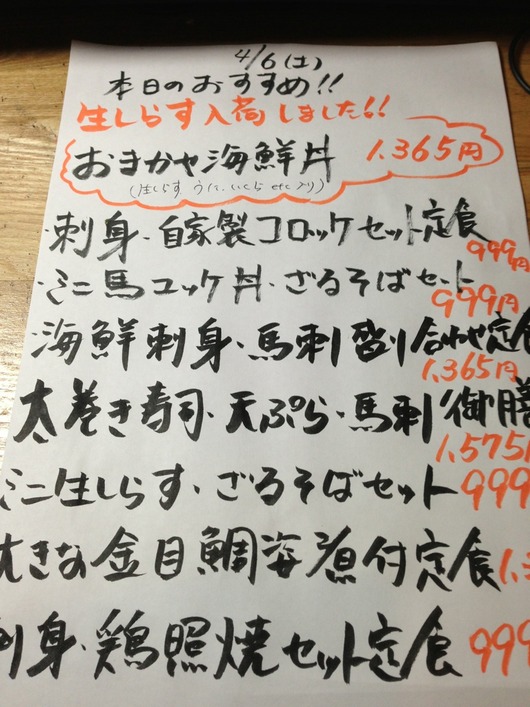 4/6(土)
本日のおすすめ!!
生しらす入荷しました!!
おまかせ海鮮丼 1,365円
(生しらす うに、いくら etc入り)
・刺身・自家製コロッケセット定食
999円
・ミニ馬ユッケ丼・ざるそばセット
999円
・海鮮刺身・馬刺盛り合わせ定食
1,365円
太巻き寿司・天ぷら・馬刺御膳
1,575円
ミニ生しらす・ざるそばセット 999
大きな金目鯛姿煮付定食 1,
刺身・鶏照焼セット定食 999